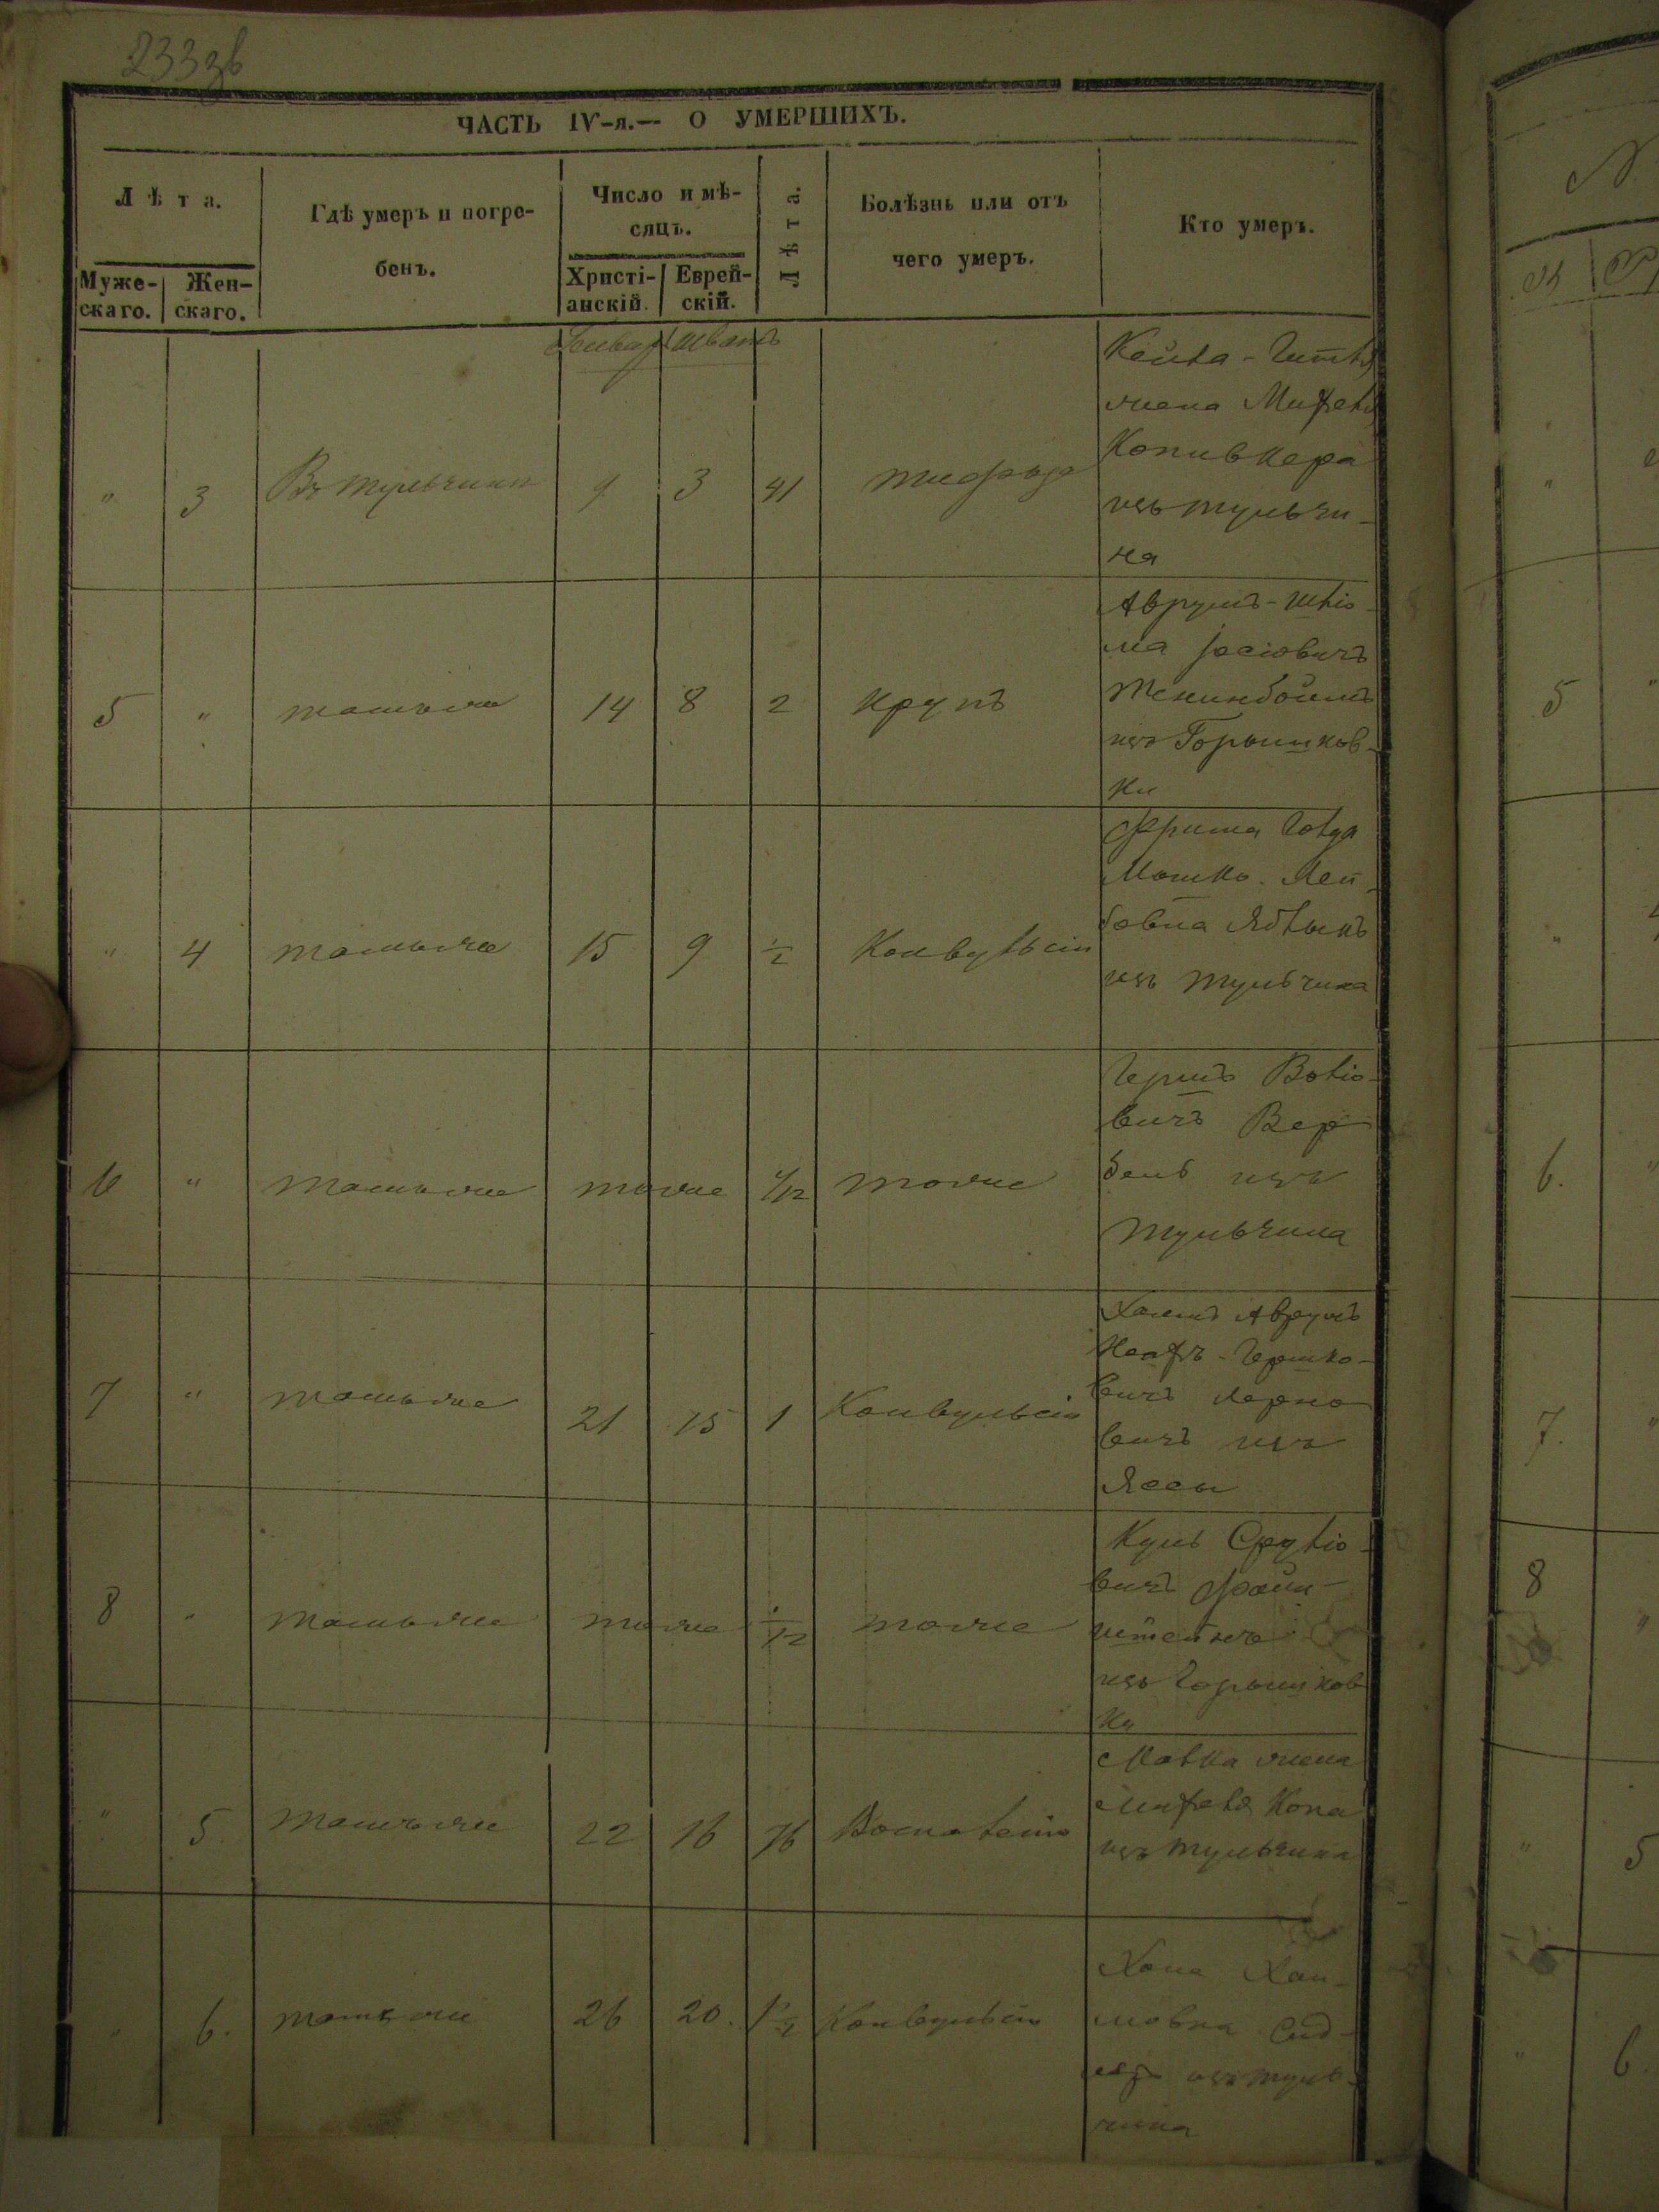 233зв
ЧАСТЬ IV-я.— О УМЕРШИХЪ.
Лѣта.
Муже-скаго.
Жен-скаго.
Гдѣ умеръ и погре-
бенъ.
Число и мѣ-
сяцъ.
Христі-анскій.
Еврей-скій.
Лѣта.
Болѣзнь или отъ
чего умеръ.
Кто умеръ.
Январ Шватъ
" 3 Въ Тульчинѣ 9 3 41 тифъ
Кейла - Гитля
жена Мифеля
Копивкера
изъ Тульчи-
на
5 " тамъже 14 8 2 крупъ
Аврумъ - Шліо-
ма Іосіовичъ
Тененбоимъ
изъ Горышков-
ки
" 4 тамъже 15 9 1/2 Конвульсіи
Фрима Голда
Мошко - Лей-
бовна
изъ Тульчина
6 " тамъже тоже /12 тоже
Гершъ Воліо-
вичъ Вер
бель изъ
Тульчина
7 " тамъже 21 15 1 Конвульсіи
Хаимъ Аврумъ
Гершко-
вичъ Лерно
вичъ изъ
Яссы
8 " тамъже тоже /12 тоже
Куль Сруліо-
вичъ Фаин-
штейнъ
изъ Горышков
ки
" 5 тамъже 22 16 76 Воспаленіе
Малка жена
Мифеля Копа
изъ Тульчина
" 6. тамъже 26 20. 1 1/2 Конвульсіи
Хана Хаи-
мовна Сид-
изъ Туль-
чина
5
6.
7.
8
" 5
" 6